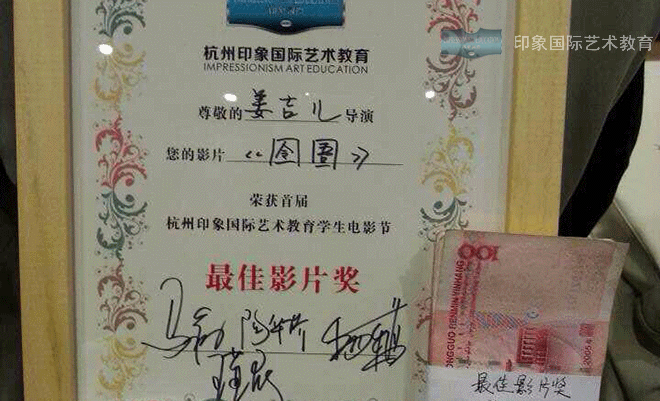 印象国际艺术教育
杭州印象国际艺术教育
IMPRESSIONISM ART EDUCATION
尊敬的 姜吉儿 导演
您的影片 《囹圄》
荣获首届
杭州印象国际艺术教育学生电影节
最佳影片奖
100
ONGGUO RENMIN YINHANG
2005年
最佳影片奖